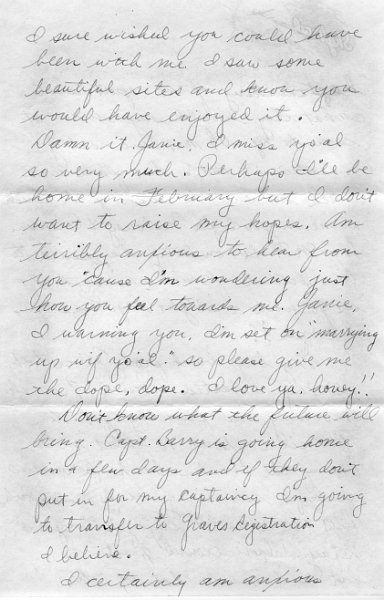 I sure wished you could have
been with me. I saw some
beautiful sites and know you
would have enjoyed it.
Damn it, Janie, I miss yo'al
so very much. Perhaps I'll be
home in February but I don't
want to raise my hopes. Am
terribly anxious to hear from
you 'cause I'm wondering just
how you feel towards me. Janie,
I warning you, I'm set on "marrying
up wif yo'al." so please give me
the dope, dope. I love ya, honey!!
Don't know what the future will
bring. Capt. Barry is going home
in a few days and if they don't
put in for my Captaincy I'm going
to transfer to Graves Registration
I believe.
I certainly am anxious